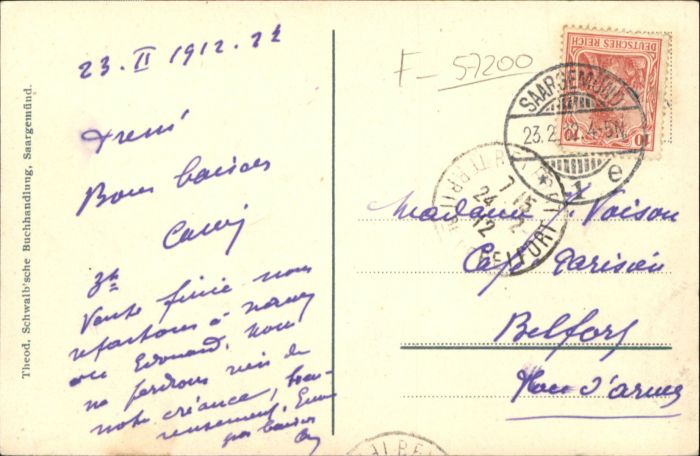 23. II 1912. 2h
Bons baisers
3h
Vente finie nous
repartons à Nancy
ou Edouard. Nous
ne perdrons rien de
notre créance, heu-
reusement.
bons baisers
Theod. Schwalb'sche Buchhandlung, Saargemünd.
F - 57200
DEUTSCHES REICH
10
SAARGEMÜND
23.2.12 4-5N
* 1 e
7 15
24 2
12
BELFORT
Madame J. Voison
Café Parisien
Belfort
Place d'armes